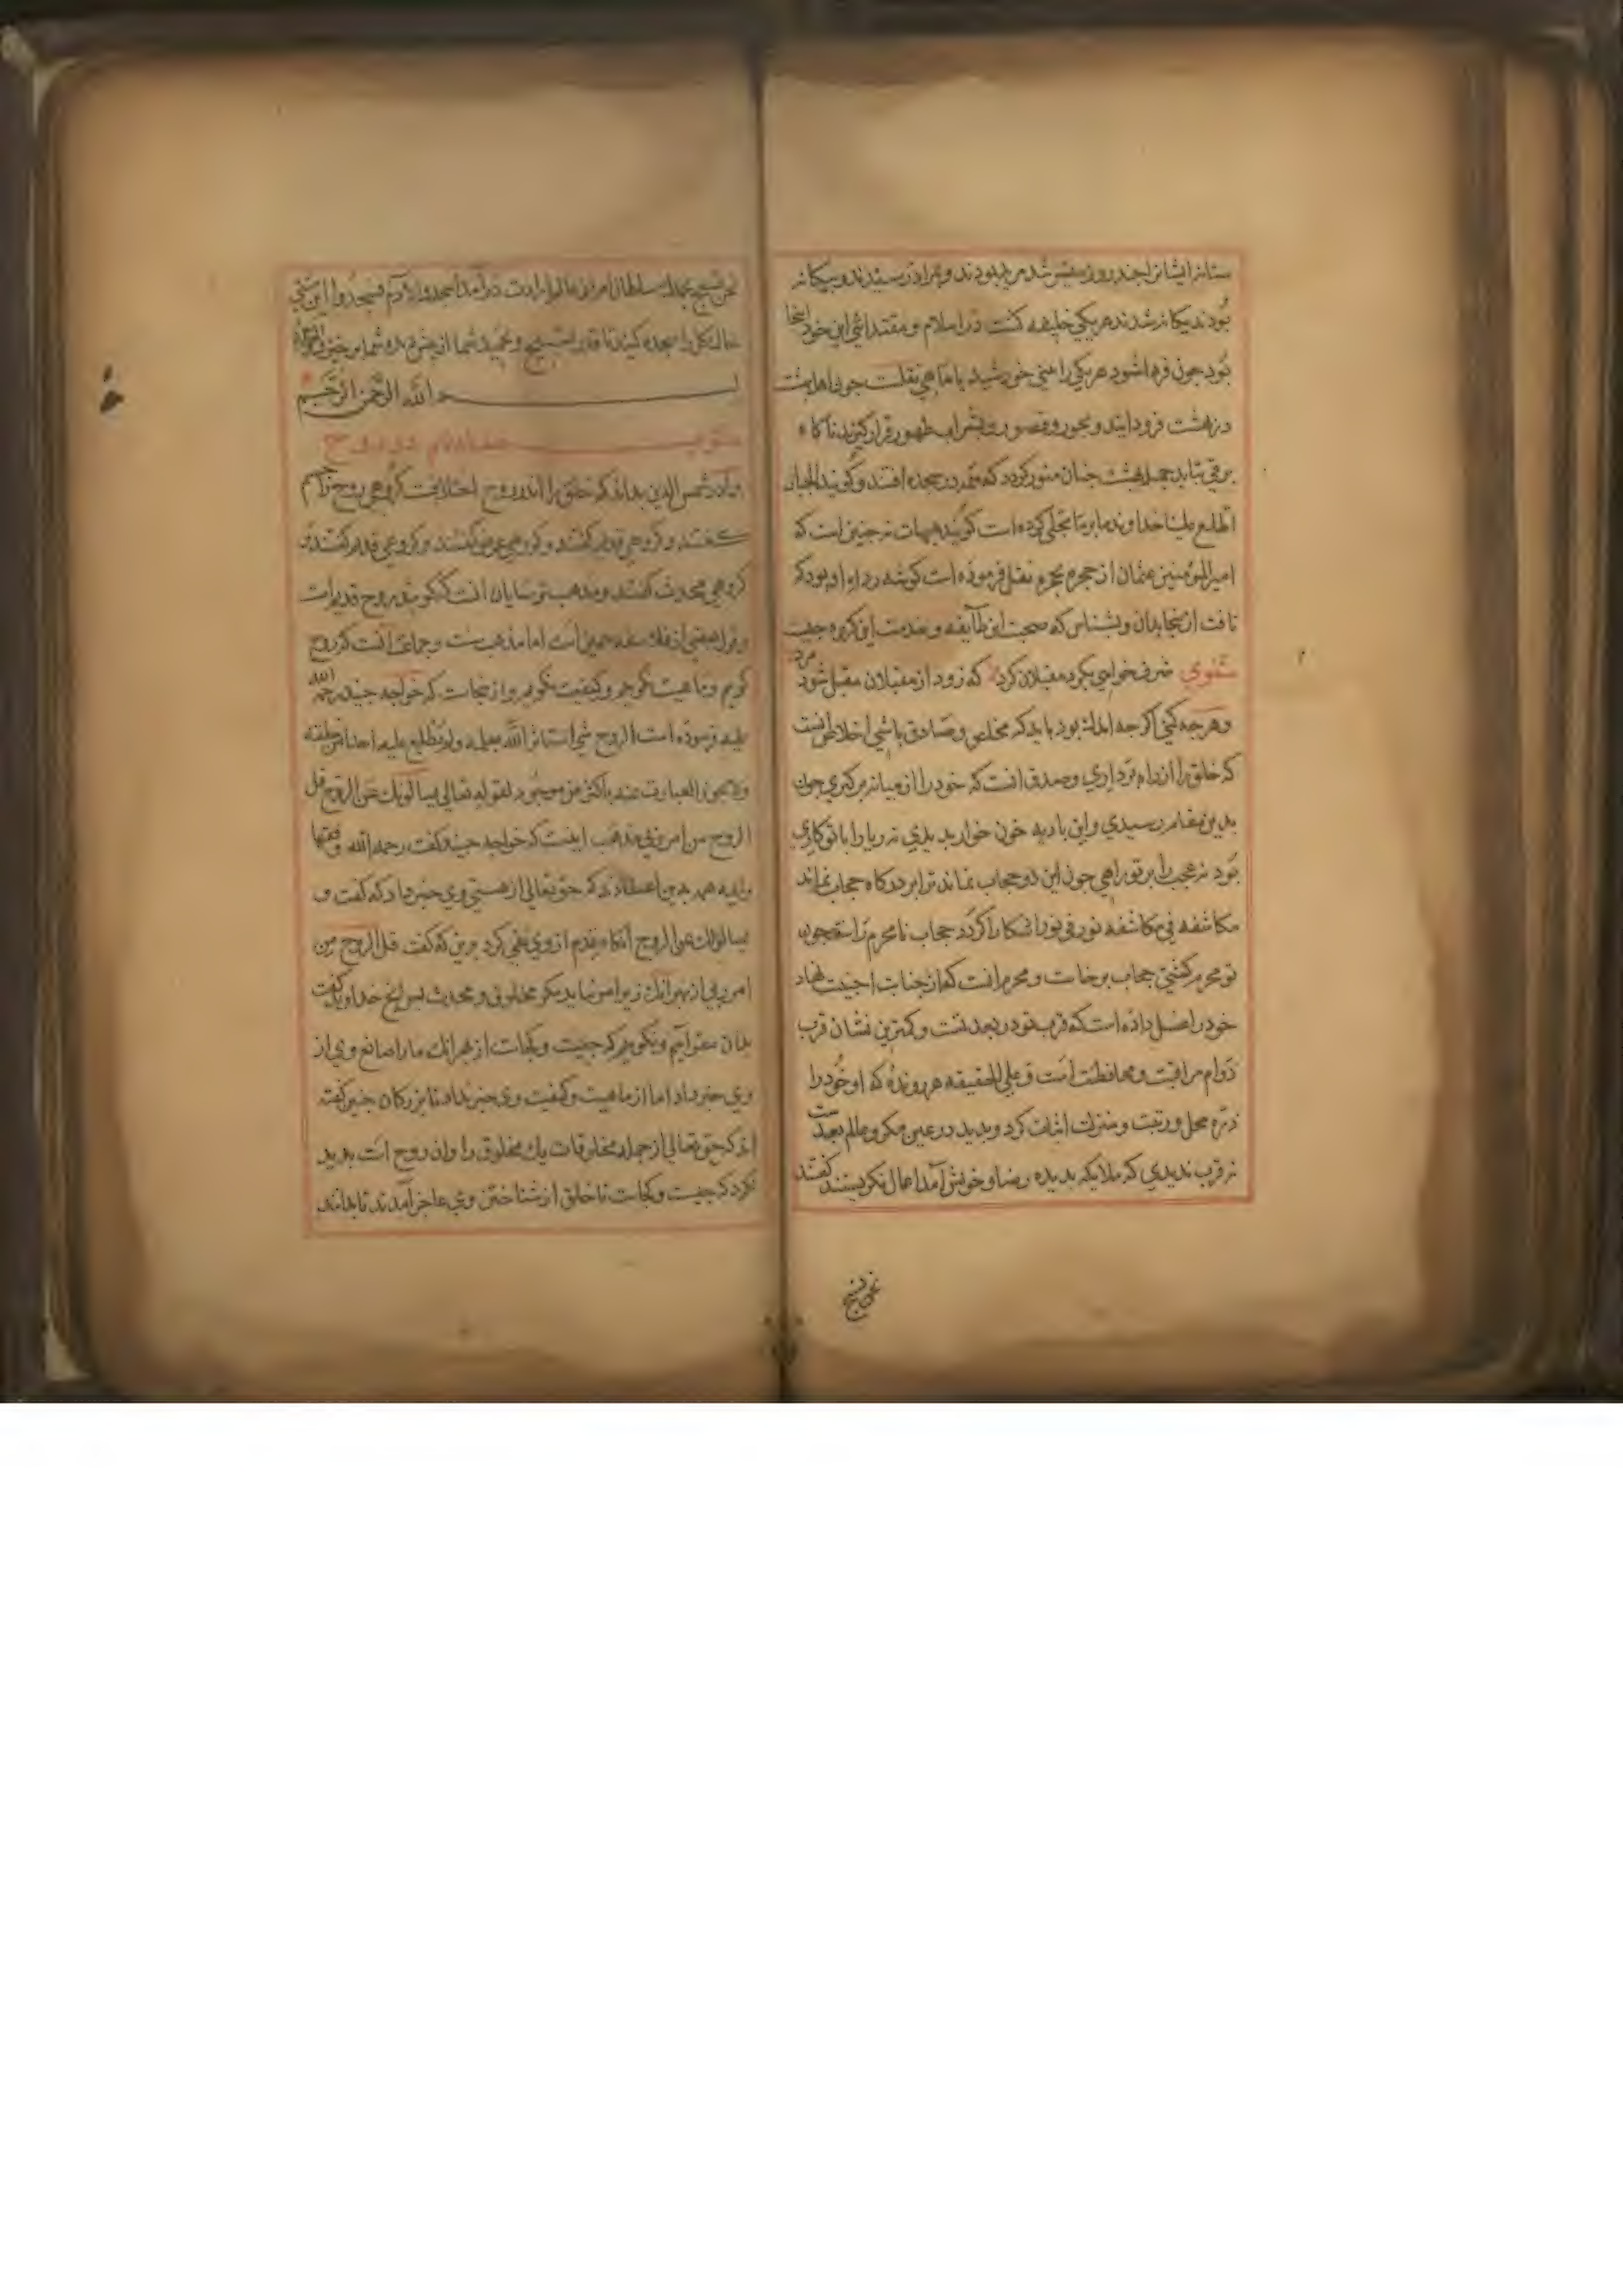 ستانه ایشانرا چند روز میسر شد مریدبودند و بمراد رسیدند و بیکانه
بودند یکانه شدند هر یکی خلیفه کشت در اسلام و مقتداشی این خود اینجا
بود جون فرداشود هر یکی را منی خورشید یا ماهی نقلست جون اهل بهشت
در بهشت فرود ایند و بحور و قصور و بشراب طهور قرار کیرند ناکاه
برقی بتابد جمله بهشت جنان منور کردد که همه در سجده افتند و کویند الجبار
اطلع علینا خداوند ما بر ما تجلی کرده است کویند هیهات نه جنین است که
امیرالمومنین عثمان از حجره بحجره نقل فرموده است کوشه رداء او بود که
تافت از اینجا بدان و بشناس که صحبت این طایفه و خدمت این کروه جیست
مثنوی شرف خواهی بکرد مقبلان کرد که زود از مقبلان مقبل شود مرد
وهرجه کنی اکرجه اندک بود باید که مخلص و صادق باشی اخلاص انست
که خلق را از راه برداری و صدق انست که خود را از میانه برکیری جون
بدین مقام رسیدی و این بادیه خون خوار بدیدی نه ریا را با تو کاری
بود نه عجب را بر تو راهی جون این دو حجاب نماند ترا بر درکاه حجاب نماند
مکاشفه فی مکاشفه نور فی نور اشکارا کردد حجاب نامحرم راست جون
تو محرم کشتی حجاب برخاست و محرم انست که از جنابت اجنبیت نهاد
خود را غسل داده است که قرب تو در بعد تست و کمترین نشان قرب
دوام مراقبت و محافظت است و علی الحقیقه هر رونده که او خود را
ذره محل و رتبت و منزلت اثبات کرد و بدید در عین مکر و عالم بعدست
نه قرب ندیدی که ملایکه بدیده رضا و خویش آمد اعمال نکریستند کفتند
نحن نسبح
نحن نسبح بحمدک سلطان امر از عالم ارادت در آمد اسجدوا لادم فسجدوا این مشتی
خاک کل را سجده کنید تا قدر تسبیح و تحمید شما از بیش دیده شما برخیزد
بسم الله الرحمن الرحیم
مکتوب صدم در روح
برادر شمس الدین بداند که خلق را اندر روح اختلافست کروهی روح جسم
کفتند و کروهی قدیم کفتند و کروهی عرض کفتند و کروهی قدیم کفتند و
کروهی محدث کفتند و مذهب ترسایان انست که کویند روح قدیم است
و قول بعضی از فلاسفه همین است اما مذهب سنت و جماعت آنست که روح
کویم و ماهیت نکویم و کیفیت نکویم و از اینجاست که خواجه جنید رحمة الله
علیه فرموده است الروح شی استاثر الله بعلمه ولم یطلع علیه احدا من خلقه
ولا یجوز العبارت عنه باکثر من موجود لقوله تعالی یسالونک عن الروح قل
الروح من امر ربی مذهب اینست که خواجه جنید کفت رحمه الله و فقها
وایمه همه بدین اعتقادند که حق تعالی از هستی وی خبر داد که کفت و
یسالونک عن الروح آنکاه قدم از وی نفی کرد برین که کفت قل الروح من
امر ربی از بهر آنک زیر امر نیاید مکر مخلوق و محدث بس انچ خداوند کفت
بدان مقر آییم و نکوییم که جیست و کجاست از بهر انک ما را صانع وی از
وی خبر داد اما از ماهیت و کیفیت وی خبر نداد تا بزرکان جنین کفته
اند که حق تعالی از جمله مخلوقات یک مخلوق را وان روح است بدید
نکرد که جیست و کجاست تا خلق از شناختن وی عاجز آمدند تا بدانند